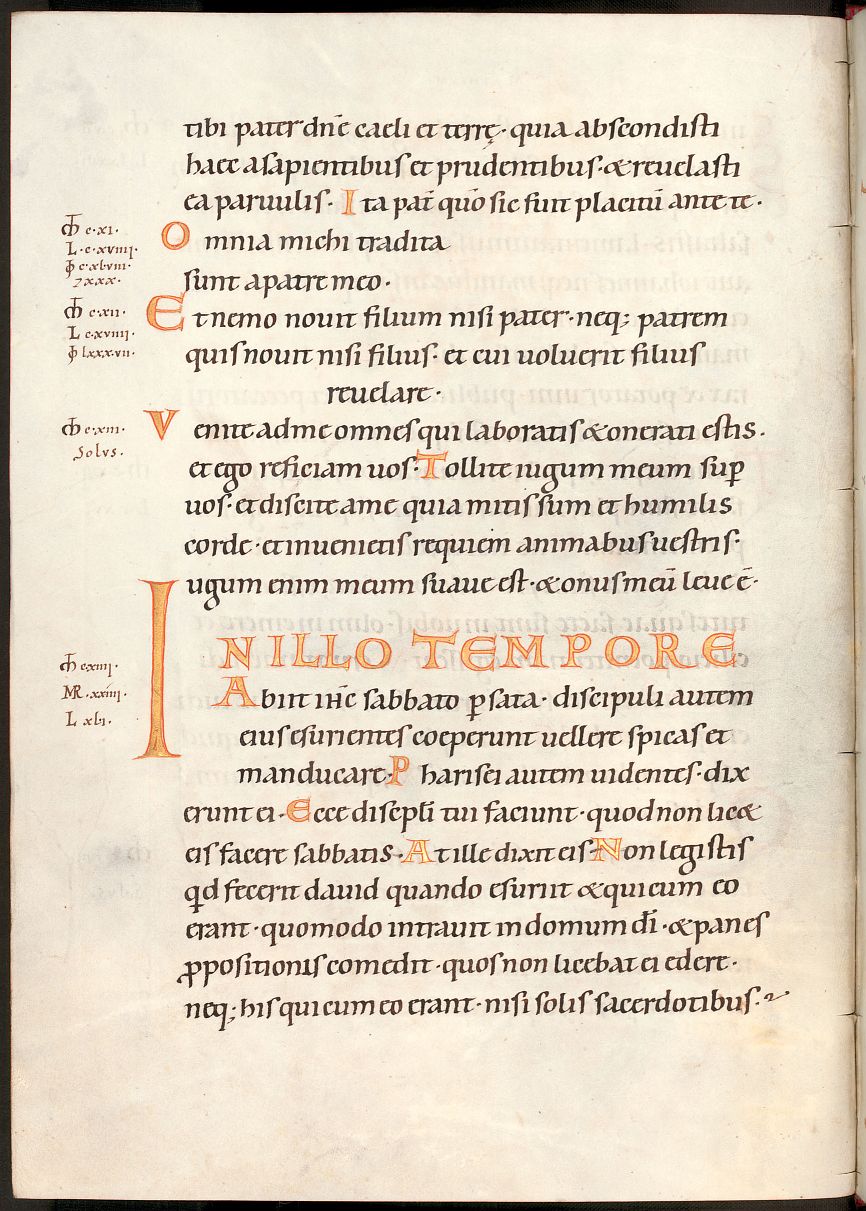 tibi pater dn̄e caeli et terrę · quia abscondisti
haec a sapientibus et prudentibus · & reuelasti
ea paruulis · Ita pat̄ quō sic fuit placitū ante te ·
Omnia michi tradita
sunt a patre meo ·
Et nemo nouit filium nisi pater · neq; patrem
quis nouit nisi filius · et cui uoluerit filius
reuelare ·
Venite ad me omnes qui laboratis & onerati estis ·
et ego reficiam uos · Tollite iugum meum sup̄
uos · et discite a me quia mitis sum et humilis
corde · et inuenietis requiem animabus uestris ·
iugum enim meum suaue est · & onus meū leue ē ·
IN ILLO TEMPORE
Abiit ih̄c sabbato ꝑ sata · discipuli autem
eius esurientes coeperunt uellere spicas et
manducare · Pharisei autem uidentes · dix
erunt ei · Ecce discipl̄i tui faciunt · quod non lic&
eis facere sabbatis · At ille dixit eis · Non legistis
qͥd fecerit dauid quando esuriit & qui cum eo
erant · quomodo intrauit in domum dī · & panes
ꝓpositionis comedit · quos non licebat ei edere ·
neq; his qui cum eo erant · nisi solis sacerdotibus ·
M̄ c · xi ·
L · c · xviiii ·
c · xlviii ·
xxx ·
M̄ c · xii ·
L c · xviiii ·
lxxx · vii ·
M̄ c · xiii ·
Solus ·
M̄ c xiiii ·
MR · xxiiii ·
L xli ·